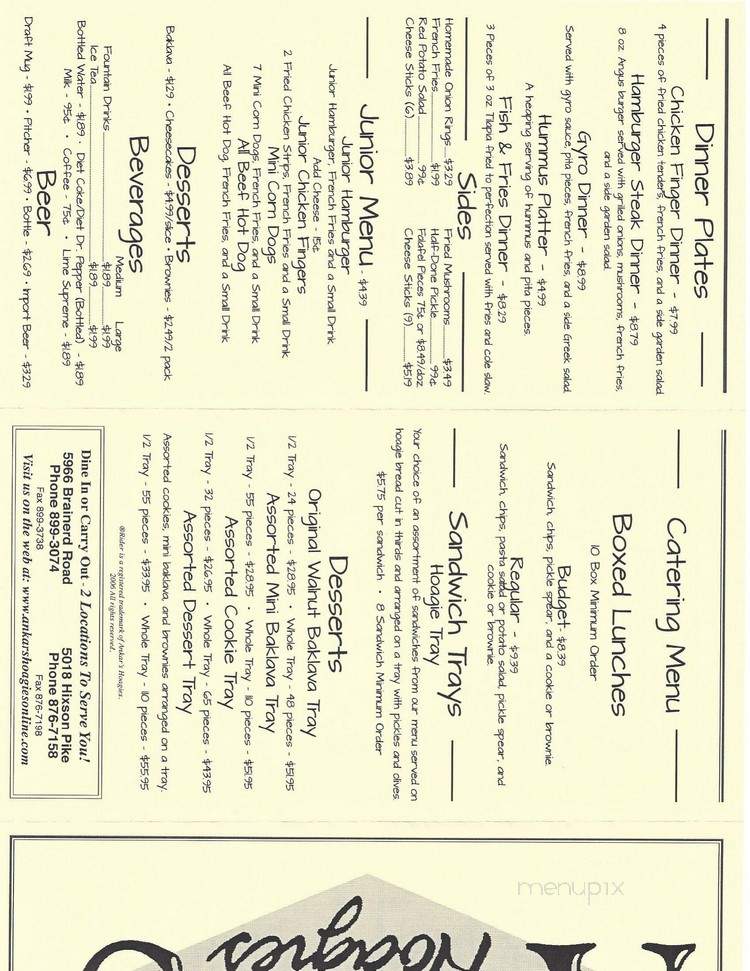 Dinner Plates
Chicken Finger Dinner - $7.99
4 pieces of fried chicken tenders, french fries, and a side garden salad
Hamburger Steak Dinner - $8.79
8 oz Angus burger served with grilled onions, mushrooms, french fries,
and a side garden salad
Gyro Dinner - $8.99
Served with gyro sauce, pita pieces, french fries, and a side Greek salad.
Hummus Platter - $4.99
A heaping serving of hummus and pita pieces.
Fish & Fries Dinner - $8.29
3 Pieces of 3 oz. Tilapia fried to perfection served with fries and cole slaw.
Sides
Homemade Onion Rings ... $3.29
French Fries ... $1.99
Red Potato Salad ... 99¢
Cheese Sticks (6) ... $3.89
Fried Mushrooms ... $3.49
Half-Done Pickle ... 99¢
Falafel Pieces 75¢ or $8.49/doz
Cheese Sticks (9) ... $5.19
Junior Menu - $4.39
Junior Hamburger
Junior Hamburger, French Fries and a Small Drink
Add Cheese - 15¢
Junior Chicken Fingers
2 Fried Chicken Strips, French Fries and a Small Drink
Mini Corn Dogs
7 Mini Corn Dogs, French Fries, and a Small Drink
All Beef Hot Dog
All Beef Hot Dog, French Fries, and a Small Drink
Desserts
Baklava - $1.29 • Cheesecakes - $4.99/slice • Brownies - $2.49/2 pack
Beverages
Medium Large
Fountain Drinks ... $1.89 ... $1.99
Ice Tea ... $1.89 ... $1.99
Bottled Water - $1.89 • Diet Coke/Diet Dr. Pepper (Bottled) - $1.89
Milk - 95¢ • Coffee - 75¢ • Lime Supreme - $1.89
Beer
Draft Mug - $1.99 • Pitcher - $6.99 • Bottle - $2.69 • Import Beer - $3.29
Catering Menu
Boxed Lunches
10 Box Minimum Order
Budget- $8.39
Sandwich, chips, pickle spear, and a cookie or brownie.
Regular - $9.39
Sandwich, chips, pasta salad or potato salad, pickle spear, and
cookie or brownie.
Sandwich Trays
Hoagie Tray
Your choice of an assortment of sandwiches from our menu served on
hoagie bread cut in thirds and arranged on a tray with pickles and olives.
$5.75 per sandwich • 8 Sandwich Minimum Order
Desserts
Original Walnut Baklava Tray
1/2 Tray - 24 pieces - $28.95 • Whole Tray - 48 pieces - $51.95
Assorted Mini Baklava Tray
1/2 Tray - 55 pieces - $28.95 • Whole Tray - 110 pieces - $51.95
Assorted Cookie Tray
1/2 Tray - 32 pieces - $26.95 • Whole Tray - 65 pieces - $43.95
Assorted Dessert Tray
Assorted cookies, mini baklava, and brownies arranged on a tray.
1/2 Tray - 55 pieces - $33.95 • Whole Tray - 110 pieces - $55.95
®Rider is a registered trademark of Ankar's Hoagies.
2006 All rights reserved.
Dine In or Carry Out - 2 Locations To Serve You!
5966 Brainerd Road 5018 Hixson Pike
Phone 899-3074 Phone 876-7158
Fax 899-3738 Fax 876-7198
Visit us on the web at: www.ankarshoagiesonline.com
Hoagies
menupix